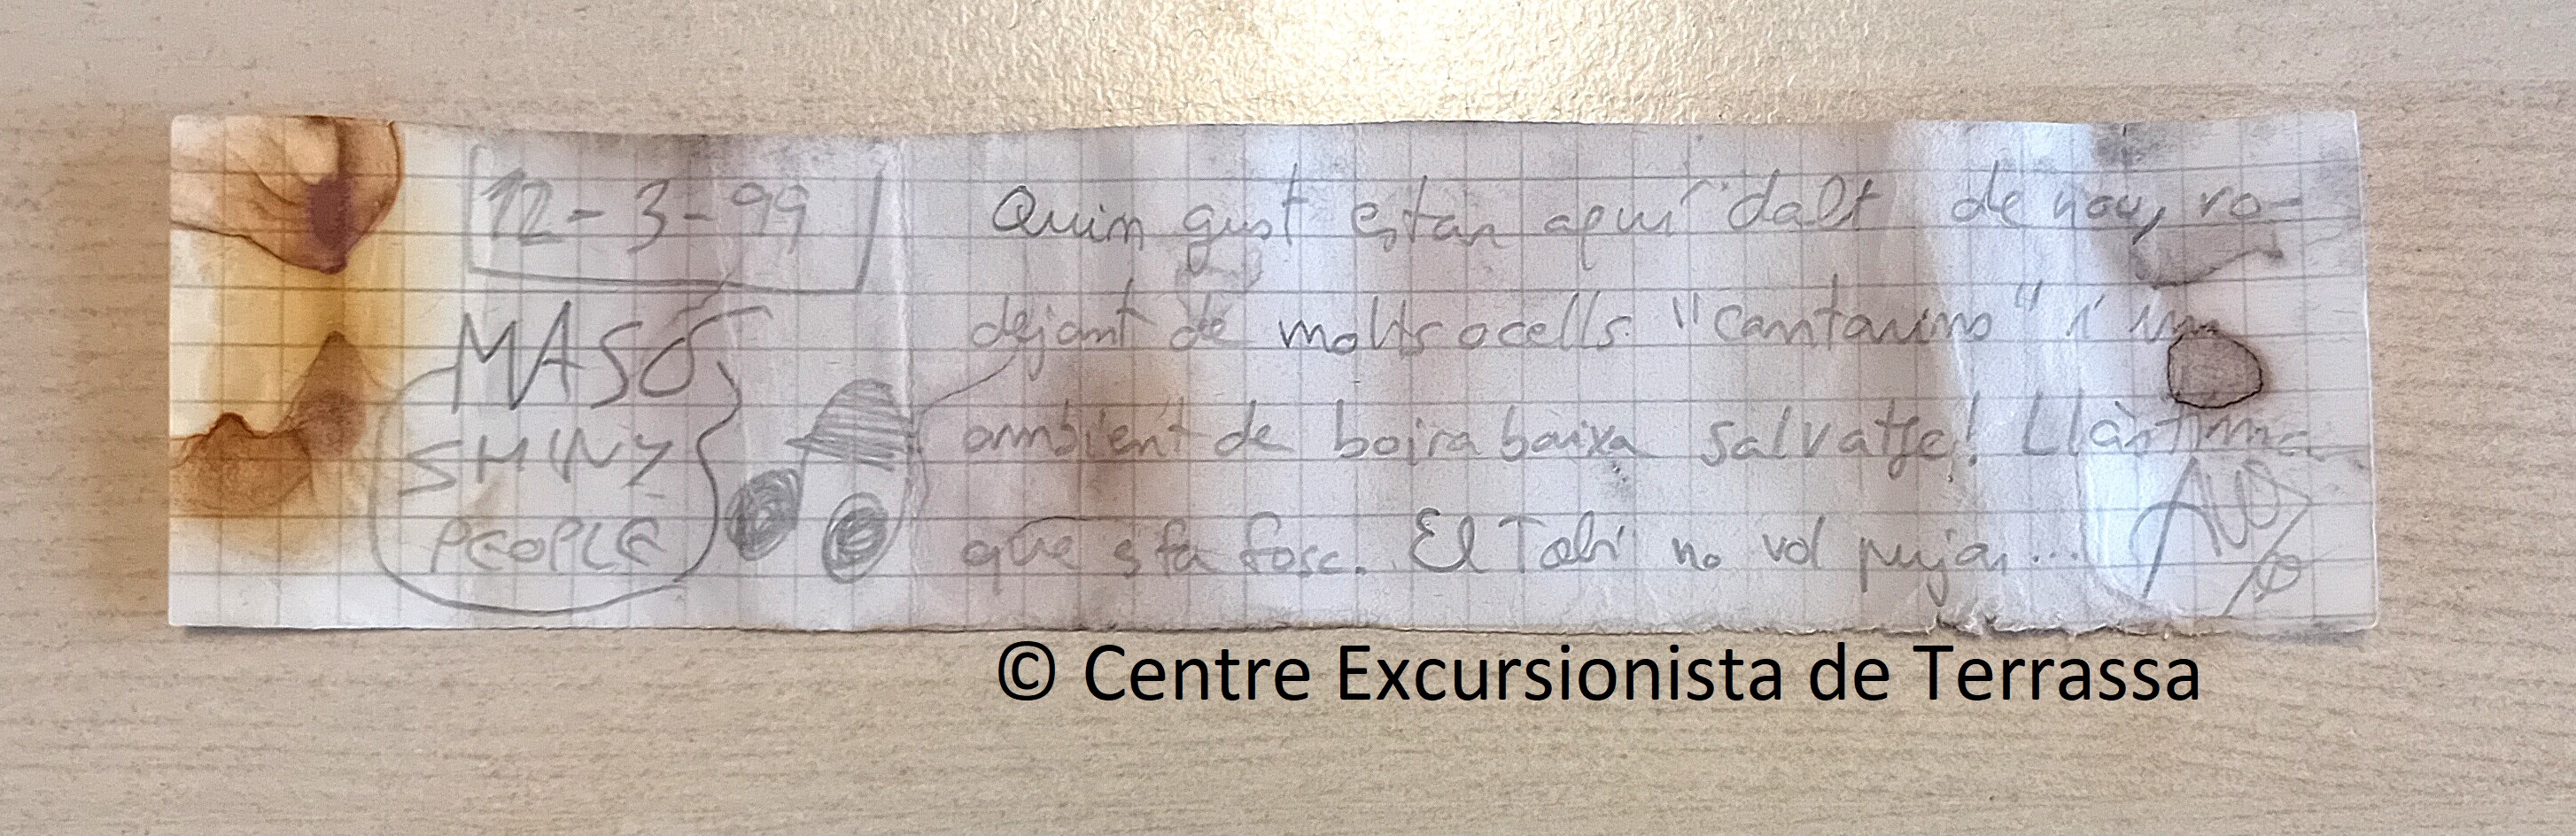 12-3-99
MASÓ
SHINY
PEOPLE
Quin gust estar aquí dalt de nou, ro-
dejant de molts ocells "cantarins" i un
ambient de boira baixa salvatge! Llàstima
que s fa fosc. El Tabi no vol pujar...
© Centre Excursionista de Terrassa